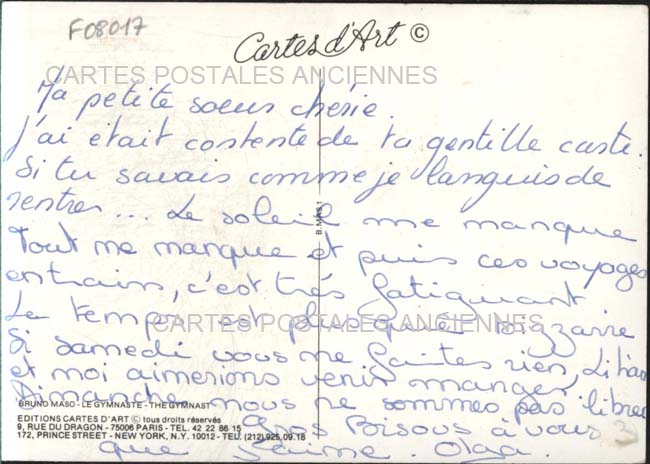 F08017
Cartes d'Art ©
CARTES POSTALES ANCIENNES
Ma petite soeur chérie.
J'ai était contente de ta gentille carte.
Si tu savais comme je languis de
rentrer... Le soleil me manque
Tout me manque et puis ces voyages
entrain, c'est très fatiguant
Le temps est plus que bizzarre
CARTES POSTALES ANCIENNES
Si samedi vous ne faites rien,
et moi aimerions venir manger,
Dimanche nous ne sommes pas libres
Gros Bisous à vous 2
que j'aime. Olga
B. MAS 1
BRUNO MASO - LE GYMNASTE - THE GYMNAST
EDITIONS CARTES D'ART © tous droits réservés
9, RUE DU DRAGON - 75006 PARIS - TEL. 42 22 86 15
172, PRINCE STREET - NEW YORK, N.Y. 10012 - TEL. (212) 925.09.18